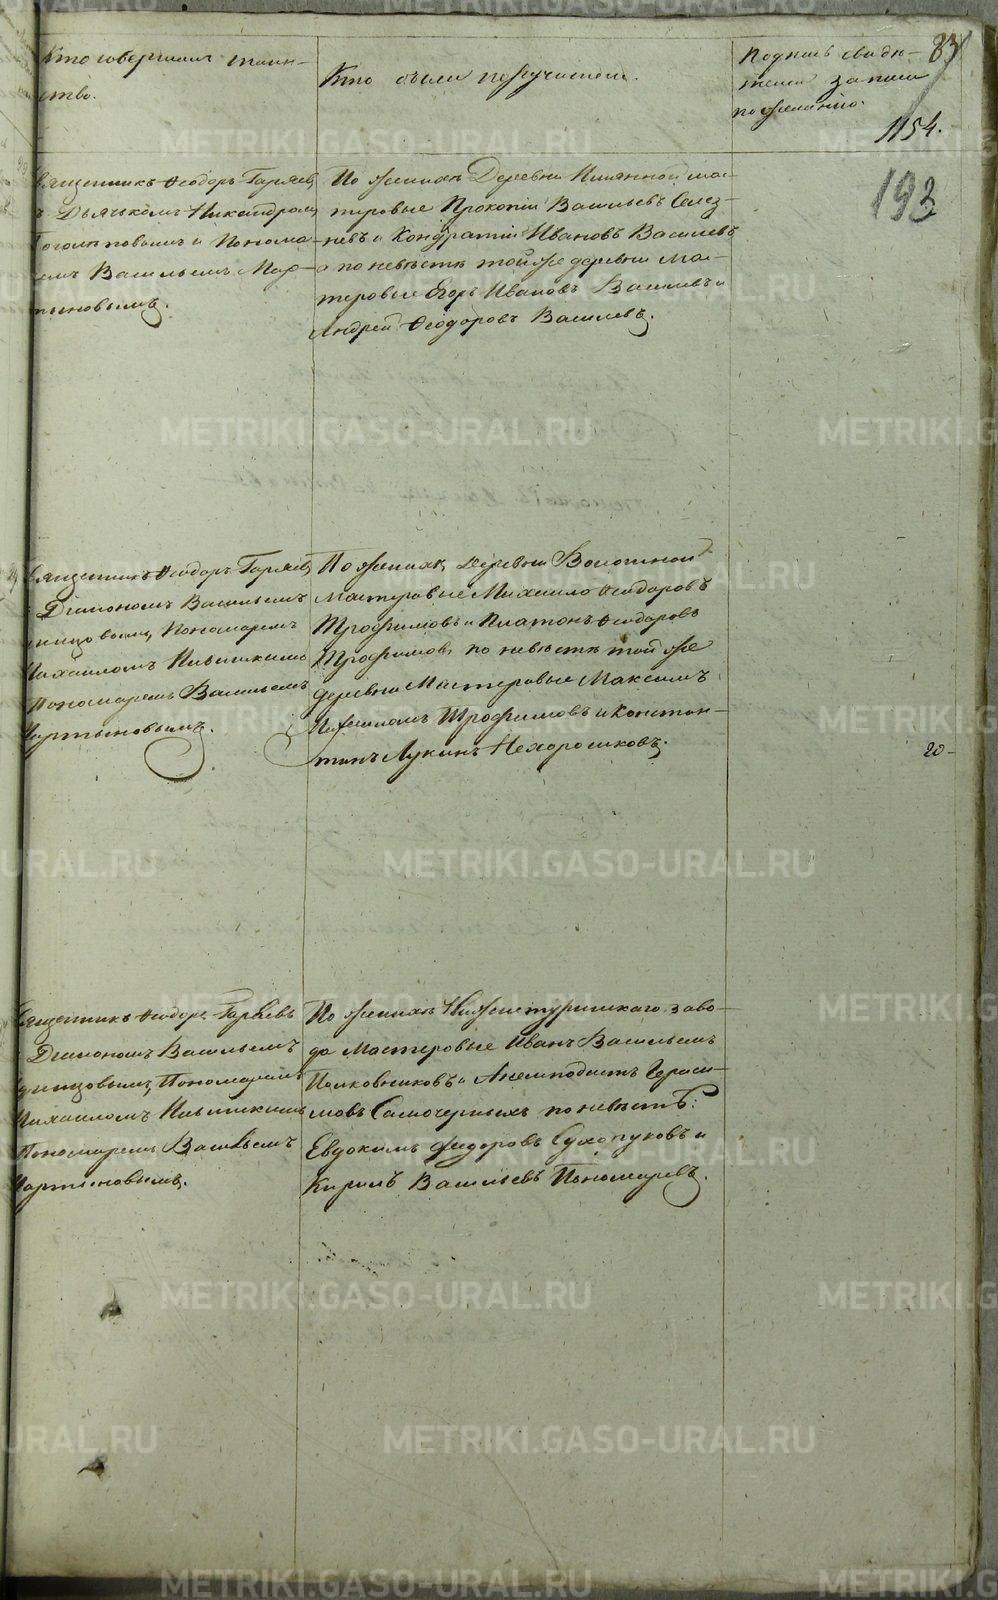 Кто совершалъ таин-
ство.
Кто были поручители.
Подпись свидѣ-
телей записи
по желанію.
83
1154.
193
Священникъ Ѳеодоръ Гаряевъ
съ Дьячкомъ Никандромъ
и Понома-
ремъ Васильемъ Мар-
тыновымъ.
По женихѣ Деревни Имянной мас-
теровые Прокопій Васильевъ Селез-
невъ и Кондратій Ивановъ Василевъ
а по невѣстѣ той же деревни Мас-
теровые Егоръ Ивановъ Василевъ и
Андрей Ѳеодоровъ Василевъ.
Священникъ Ѳеодоръ Гаряевъ
Діакономъ Васильемъ
Пономаремъ
Михаиломъ Ивышкинымъ
Пономаремъ Васильемъ
Мартыновымъ.
По женихѣ деревни Болотной
Мастеровые Михайло Ѳеодоровъ
Трофимовъ и Платонъ Ѳеодоровъ
Трофимовъ, по невѣстѣ той же
деревни Мастеровые Максимъ
Трофимовъ и Констан-
тинъ Лукинъ Нехорошковъ.
20-
Священникъ Ѳеодоръ Гаряевъ
Діакономъ Васильемъ
Удинцовымъ, Пономаремъ
Михаиломъ Ивышкинымъ
Пономаремъ Васильемъ
Мартыновымъ.
По женихѣ Нижнетуринскаго заво-
да Мастеровые Иванъ Васильевъ
Полковниковъ и Анемподистъ Гераси-
мовъ Самочерныхъ по невѣстѣ:
Евдокимъ Федоровъ Сухопуковъ и
Кирилъ Васильевъ Пономаревъ.
METRIKI.GASO-URAL.RU